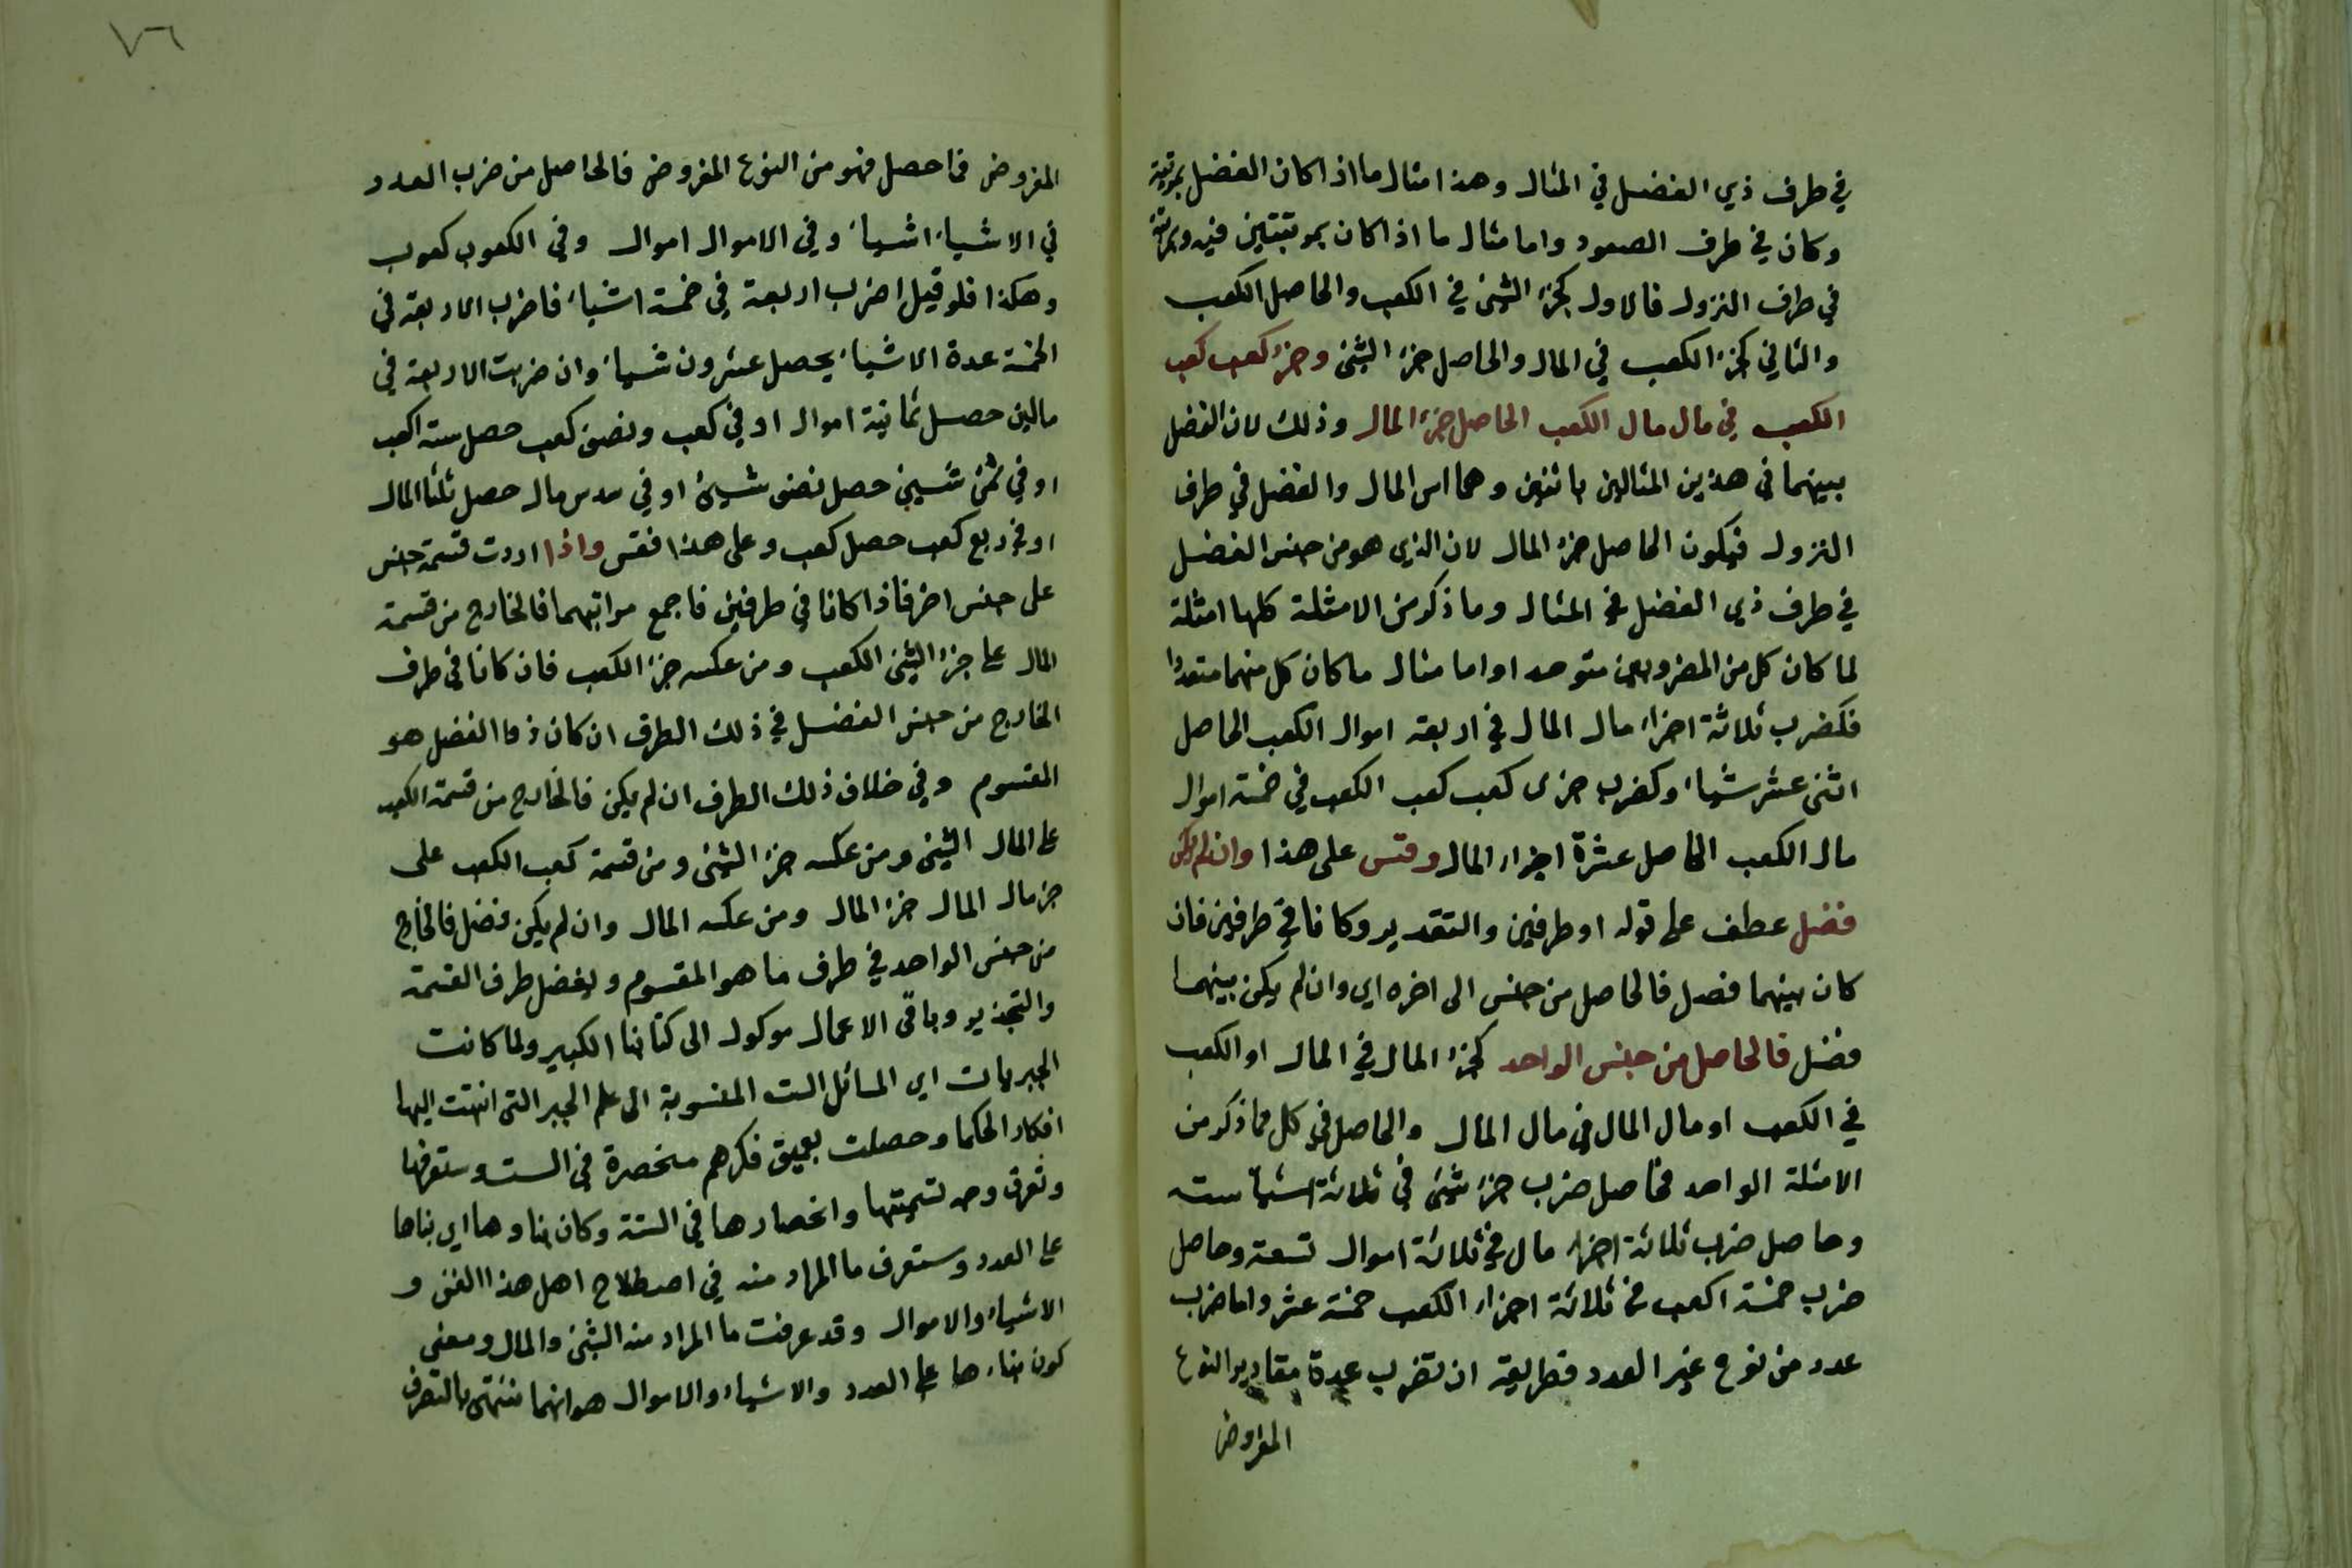 في طرف ذي الفضل في المثال وهذا مثال ما اذا كان الفضل بمرتبة
وكان في طرف الصعود واما مثال ما اذا كان بمرتبتين فيه وبمرتبة
في طرف النزول فالاول كجزء الشئ في الكعب والحاصل الكعب
والثاني كجزء الكعب في المال والحاصل جزء الشئ وجزء كعب كعب
الكعب في مال مال الكعب الحاصل جزء المال وذلك لان الفضل
بينهما في هذين المثالين باثنين وهما اس المال والفضل في طرف
النزول فيكون الحاصل جزء المال لان الذي هو من جنس الفضل
في طرف ذي الفضل في المثال وما ذكر من الامثلة كلها امثلة
لما كان كل من المضروبين متوحدا واما مثال ما كان كل منهما متعددا
فكضرب ثلاثة اجزاء مال المال في اربعة اموال الكعب الحاصل
اثنى عشر شيأ وكضرب جزى كعب كعب الكعب في خمسة اموال
مال الكعب الحاصل عشرة اجزاء المال وقس على هذا وان لم يكن
فضل عطف على قوله او طرفين والتقدير وكانا في طرفين فان
كان بينهما فضل فالحاصل من جنس الى اخره اي وان لم يكن بينهما
فضل فالحاصل من جنس الواحد كجزء المال في المال او الكعب
في الكعب او مال المال في مال المال والحاصل في كل مما ذكر من
الامثلة الواحد فحاصل ضرب جزء شئ في ثلاثة اشيأ ستة
وحاصل ضرب ثلاثة اجزاء مال في ثلاثة اموال تسعة وحاصل
ضرب خمسة اكعب في ثلاثة اجزاء الكعب خمسة عشر واما ضرب
عدد من نوع غير العدد فطريقه ان تضرب عدة مقادير النوع
المفروض
٧٦
المفروض فما حصل فهو من النوع المفروض فالحاصل من ضرب العدد
في الاشياء اشيأ وفي الاموال اموال وفي الكعوب كعوب
وهكذا فلو قيل اضرب اربعة في خمسة اشيأ فاضرب الاربعة في
الخمسة عدة الاشياء يحصل عشرون شيأ وان ضربت الاربعة في
مالين حصل ثمانية اموال او في كعب ونصف كعب حصل ستة اكعب
او في ثمن شئ حصل نصف شئ او في سدس مال حصل ثلثا المال
او في ربع كعب حصل كعب وعلى هذا فقس واذا اردت قسمة جنس
على جنس اخر فاذا كانا في طرفين فاجمع مراتبهما فالخارج من قسمة
المال على جزء الشئ الكعب ومن عكسه جزء الكعب فان كانا في طرف
الخارج من جنس الفضل في ذلك الطرف ان كان ذو الفضل هو
المقسوم وفي خلاف ذلك الطرف ان لم يكن فالخارج من قسمة الكعب
على المال الشئ ومن عكسه جزء الشئ ومن قسمة كعب الكعب على
جزء مال المال جزء المال ومن عكسه المال وان لم يكن فضل فالخارج
من جنس الواحد في طرف ما هو المقسوم وبفضل طرف القسمة
والتجذير وباقي الاعمال موكول الى كتابنا الكبير ولما كانت
الجبريات اي المسائل الست المنسوبة الى علم الجبر التي انتهت اليها
افكار الحكما وحصلت بعميق فكرهم منحصرة في الست وستعرفها
وتعرف وجه تسميتها وانحصارها في الستة وكان بناوها اي بناها
على العدد وستعرف ما المراد منه في اصطلاح اهل هذا الفن و
الاشياء والاموال وقد عرفت ما المراد من الشئ والمال ومعنى
كون بناءها على العدد والاشياء والاموال هو انها تنتهى بالتصرف